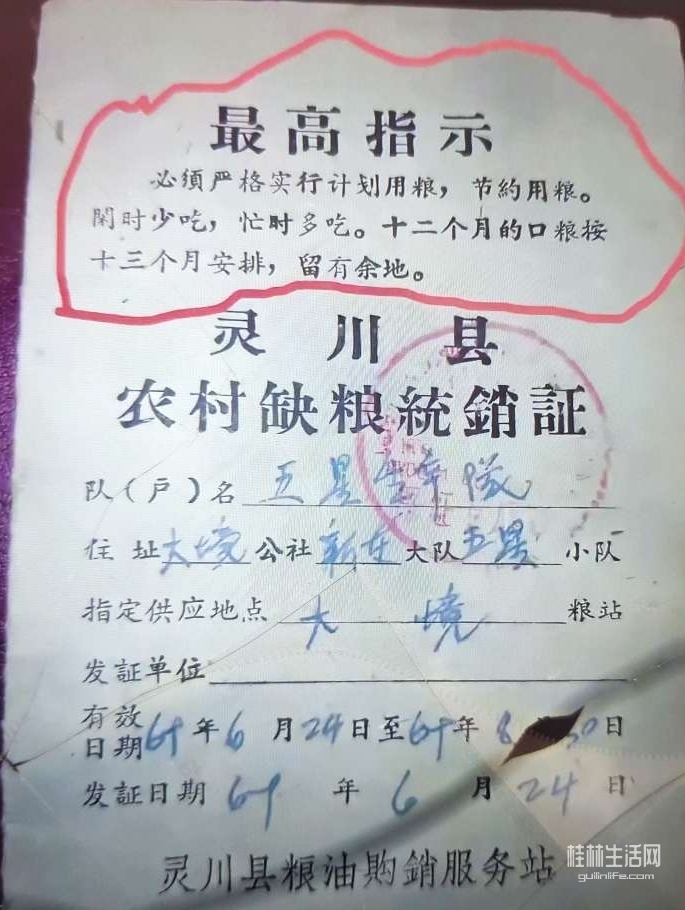 最高指示
必須严格实行计划用粮，节約用粮。
閑时少吃，忙时多吃。十二个月的口粮按
十三个月安排，留有余地。
灵川县
农村缺粮統銷証
队（户）名 五星生产队
住址 大境 公社 新 大队 五星 小队
指定供应地点 大境 粮站
发証单位
有效日期 69年6月24日至69年8月30日
发証日期 69年6月24日
灵川县粮油购銷服务站
桂林生活网
guilinlife.com